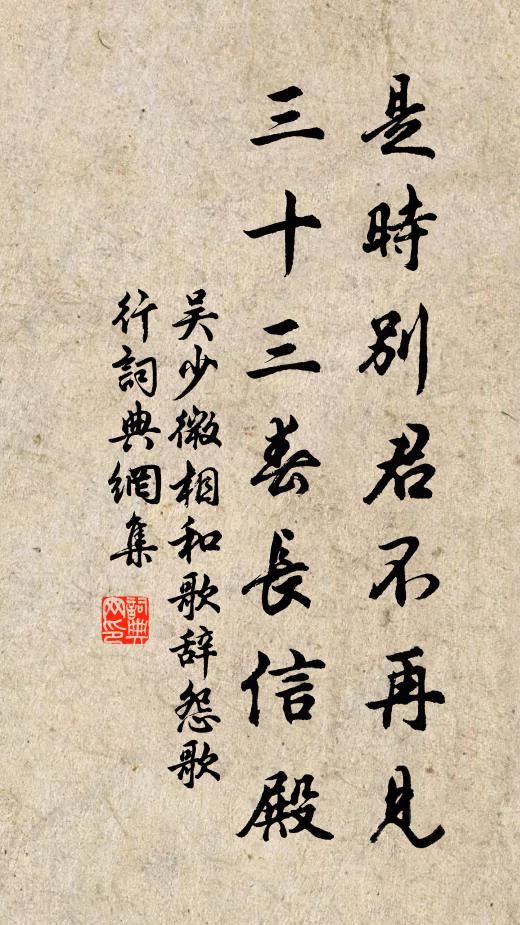 是時別君不再見
三十三春長信殿
吳少微相和歌辞怨歌
行詞典網集
詞典
网印